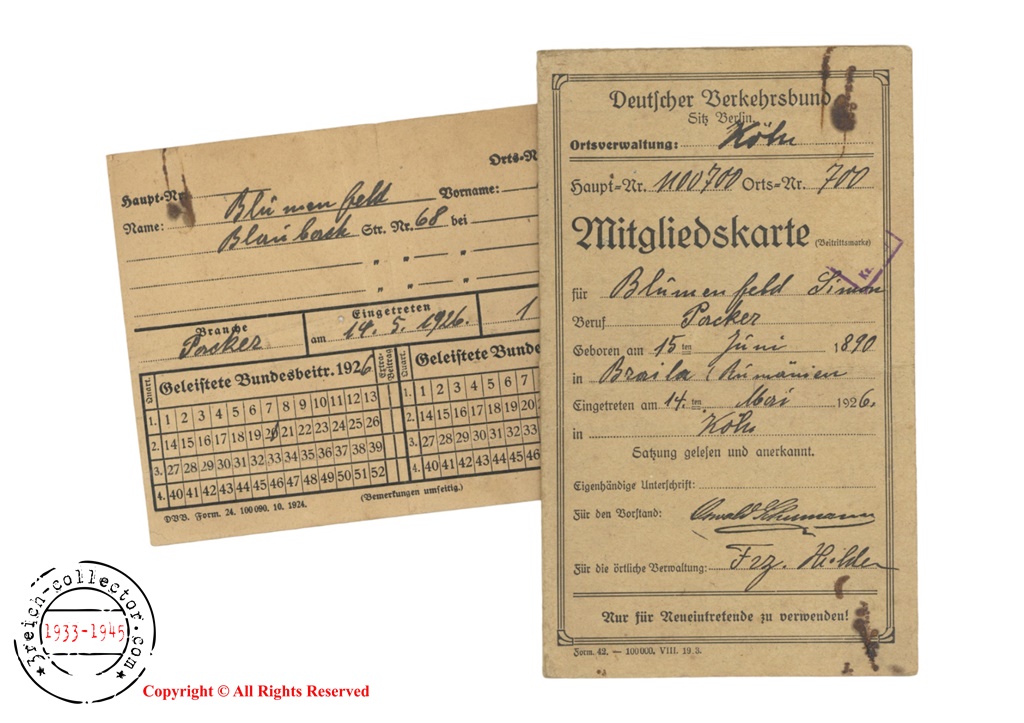 Orts-N
Haupt-Nr.
Name: Blumenfeld Vorname:
Blaubach Str. Nr. 68 bei
" " "
" " "
Branche
Packer
Eingetreten
am 14. 5. 1926.
1
Quart. Geleistete Bundesbeitr. 1926 Extra-Beitrag Quart. Geleistete Bunde
1. 1 2 3 4 5 6 7 8 9 10 11 12 13 1. 1 2 3 4 5 6 7
2. 14 15 16 17 18 19 20 21 22 23 24 25 26 2. 14 15 16 17 18 19 20
3. 27 28 29 30 31 32 33 34 35 36 37 38 39 3. 27 28 29 30 31 32 33
4. 40 41 42 43 44 45 46 47 48 49 50 51 52 4. 40 41 42 43 44 45 46
(Bemerkungen umseitig.)
DVB. Form. 24. 100 090. 10. 1924.
Deutscher Verkehrsbund
Sitz Berlin.
Ortsverwaltung: Köln
Haupt-Nr. 1100700 Orts-Nr. 700
Mitgliedskarte (Beitrittsmarke)
für Blumenfeld Simon
Beruf Packer
Geboren am 15ten Juni 1890
in Braila (Rumänien
Eingetreten am 14.ten Mai 1926.
in Köln
Satzung gelesen und anerkannt.
Eigenhändige Unterschrift:
Für den Vorstand: Oswald Schumann
Für die örtliche Verwaltung: Frz. Hilden
Nur für Neueintretende zu verwenden!
Form. 42. — 100 000. VIII. 19
3reich-collector.com
1933-1945
Copyright © All Rights Reserved